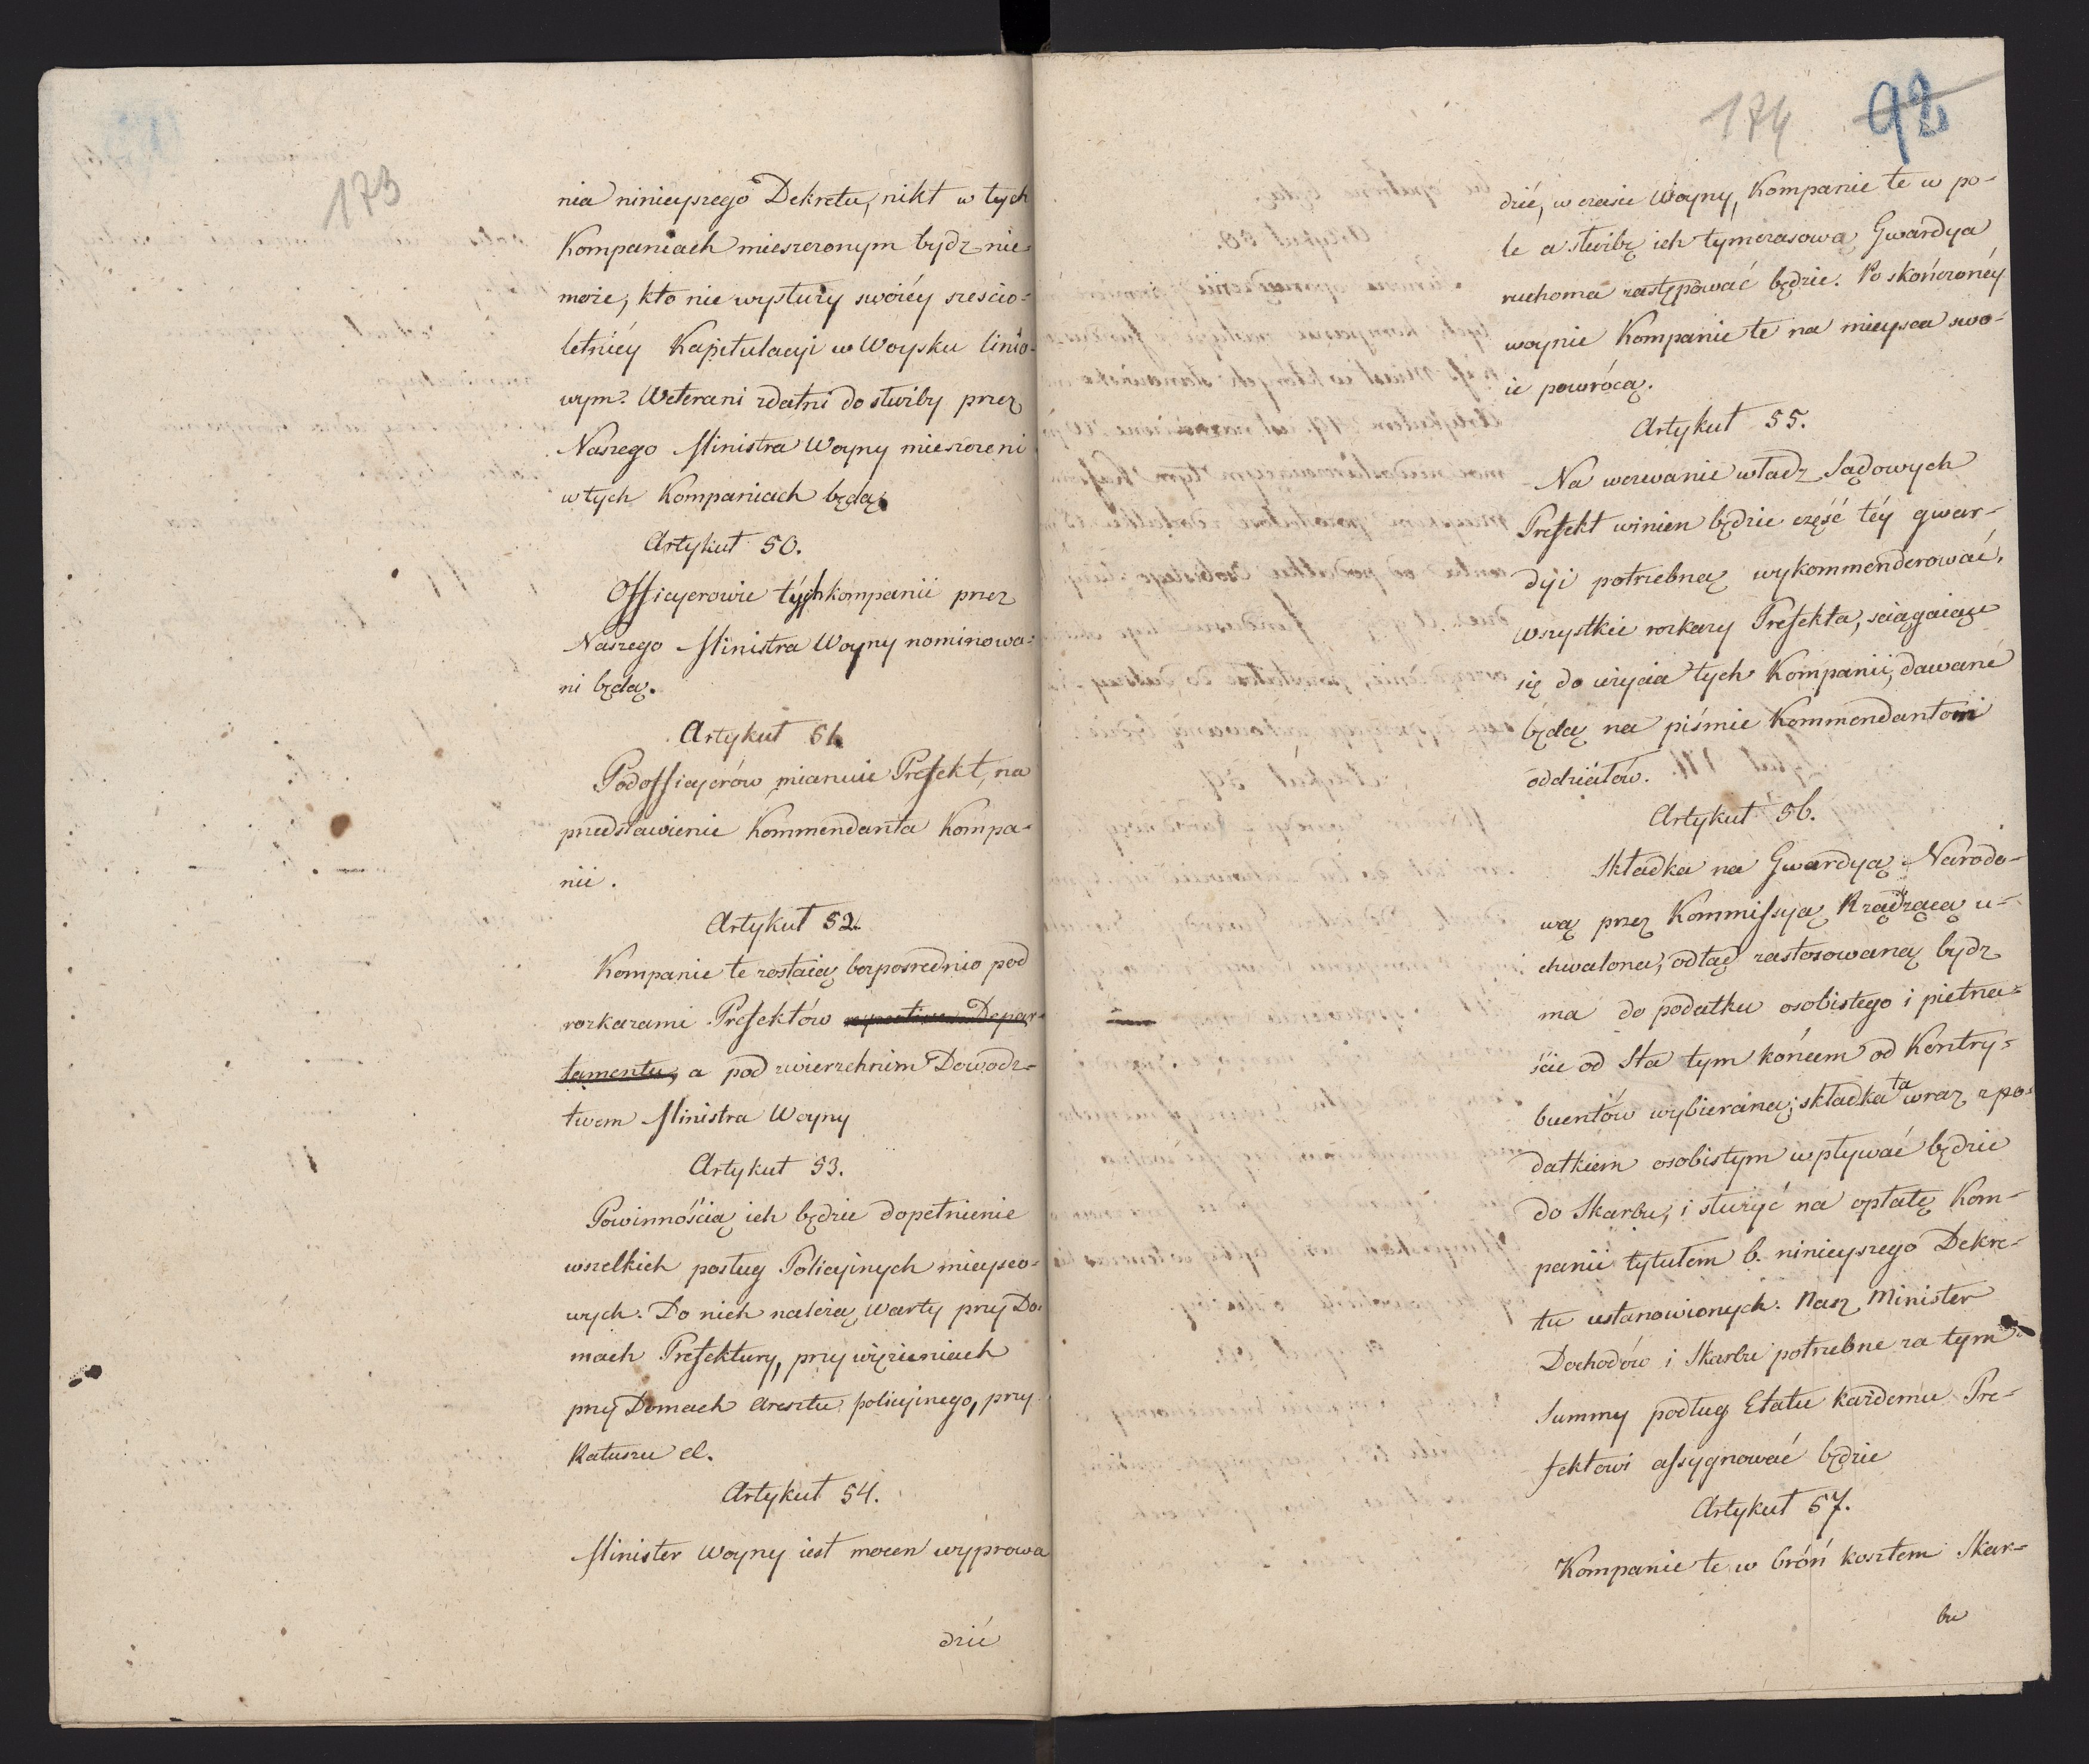 173
nia ninieyszego Dekretu, nikt w tych
Kompaniach mieszczonym bydz nie-
może, kto nie wysłuży swoiéy sześcio-
letniéy Kapitulacyi w Woysku linio-
wym. Weterani zdatni do służby przez
Naszego Ministra Woyny mieszczeni
w tych Kompaniach będą.
Artykuł 50.
Officyerowie tych kompanii przez
Naszego Ministra Woyny nominowa-
ni będą.
Artykuł 51.
Podofficyerów mianuie Prefekt, na
przedstawienie Kommendanta Kompa-
nii.
Artykuł 52.
Kompanie te zostaią bezposrednio pod
rozkazami Prefektów Depar-
tamentu, a pod zwierzchnim Dowodz-
twem Ministra Woyny
Artykuł 53.
Powinnością ich będzie dopełnienie
wszelkich posług Policyinych mieysco-
wych. Do nich należą Warty przy Do-
mach Prefektury, przy więzieniach
przy Domach aresztu policyinego, przy
Ratuszu et.
Artykuł 54.
Minister Woyny iest mocen wyprowa
dzić
174 92
dzić, w czasie Woyny, Kompanie te w po-
le a służbę ich tymczasową Gwardya
ruchoma zastępować będzie. Po skończonéy
woynie Kompanie te na mieysca swo-
ie powrócą.
Artykuł 55.
Na wezwanie władz Sądowych
Prefekt winien będzie część téy gwar-
dyi potrzebną wykommenderować,
wszystkie rozkazy Prefekta, sciągaiące
się do użycia tych Kompanii, dawane
będą na piśmie Kommendantom
oddziałów.
Artykuł 56.
Składka na Gwardyą Narodo-
wą przez Kommissyą Rządzącą u-
chwalona, odtąd zastosowaną bydz
ma do podatku osobistego i pietna-
ście od Sta tym końcem od Kontry-
buentów wybieraną; składka ta wraz z po-
datkiem osobistym wpływać będzie
do Skarbu, i służyć na opłatę Kom-
panii tytułem 6. ninieyszego Dekre-
tu ustanowionych. Nasz Minister
Dochodów i Skarbu potrzebne za tym
Summy podług Etatu każdemu Pre-
fektowi assygnować będzie
Artykuł 57.
Kompanie te w broń kosztem Skar-
bu